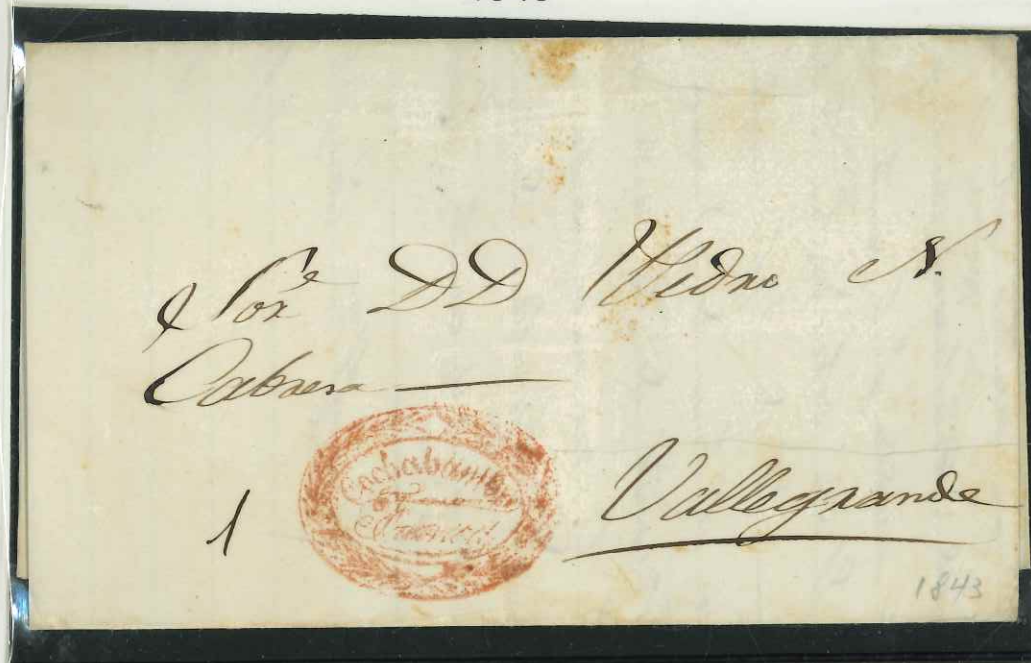 Sor. DD Pedro N.
Cabrera
Cochabamba
Franca
1
Vallegrande
1843